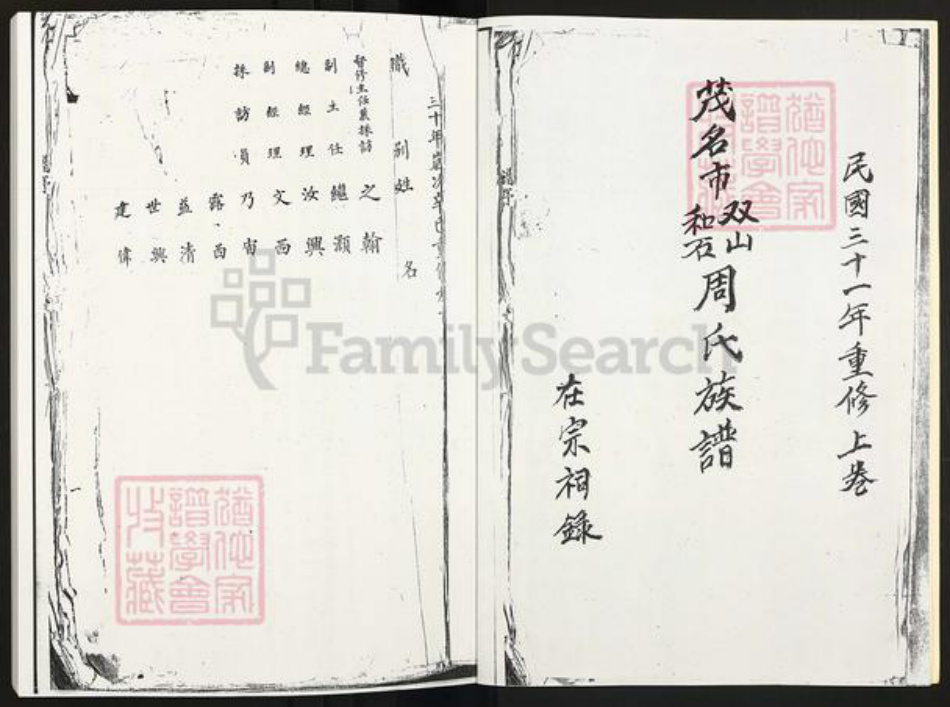 民國三十一年重修上卷
茂名市双山和石周氏族譜
在宗祠錄
三十年歲次辛巳重修
職別姓名
督修主任兼採訪之翰
副主任繼顥
總經理汝興
副經理文西
採訪員乃宙
露西
益清
世興
建偉
譜學會
收藏
FamilySearch